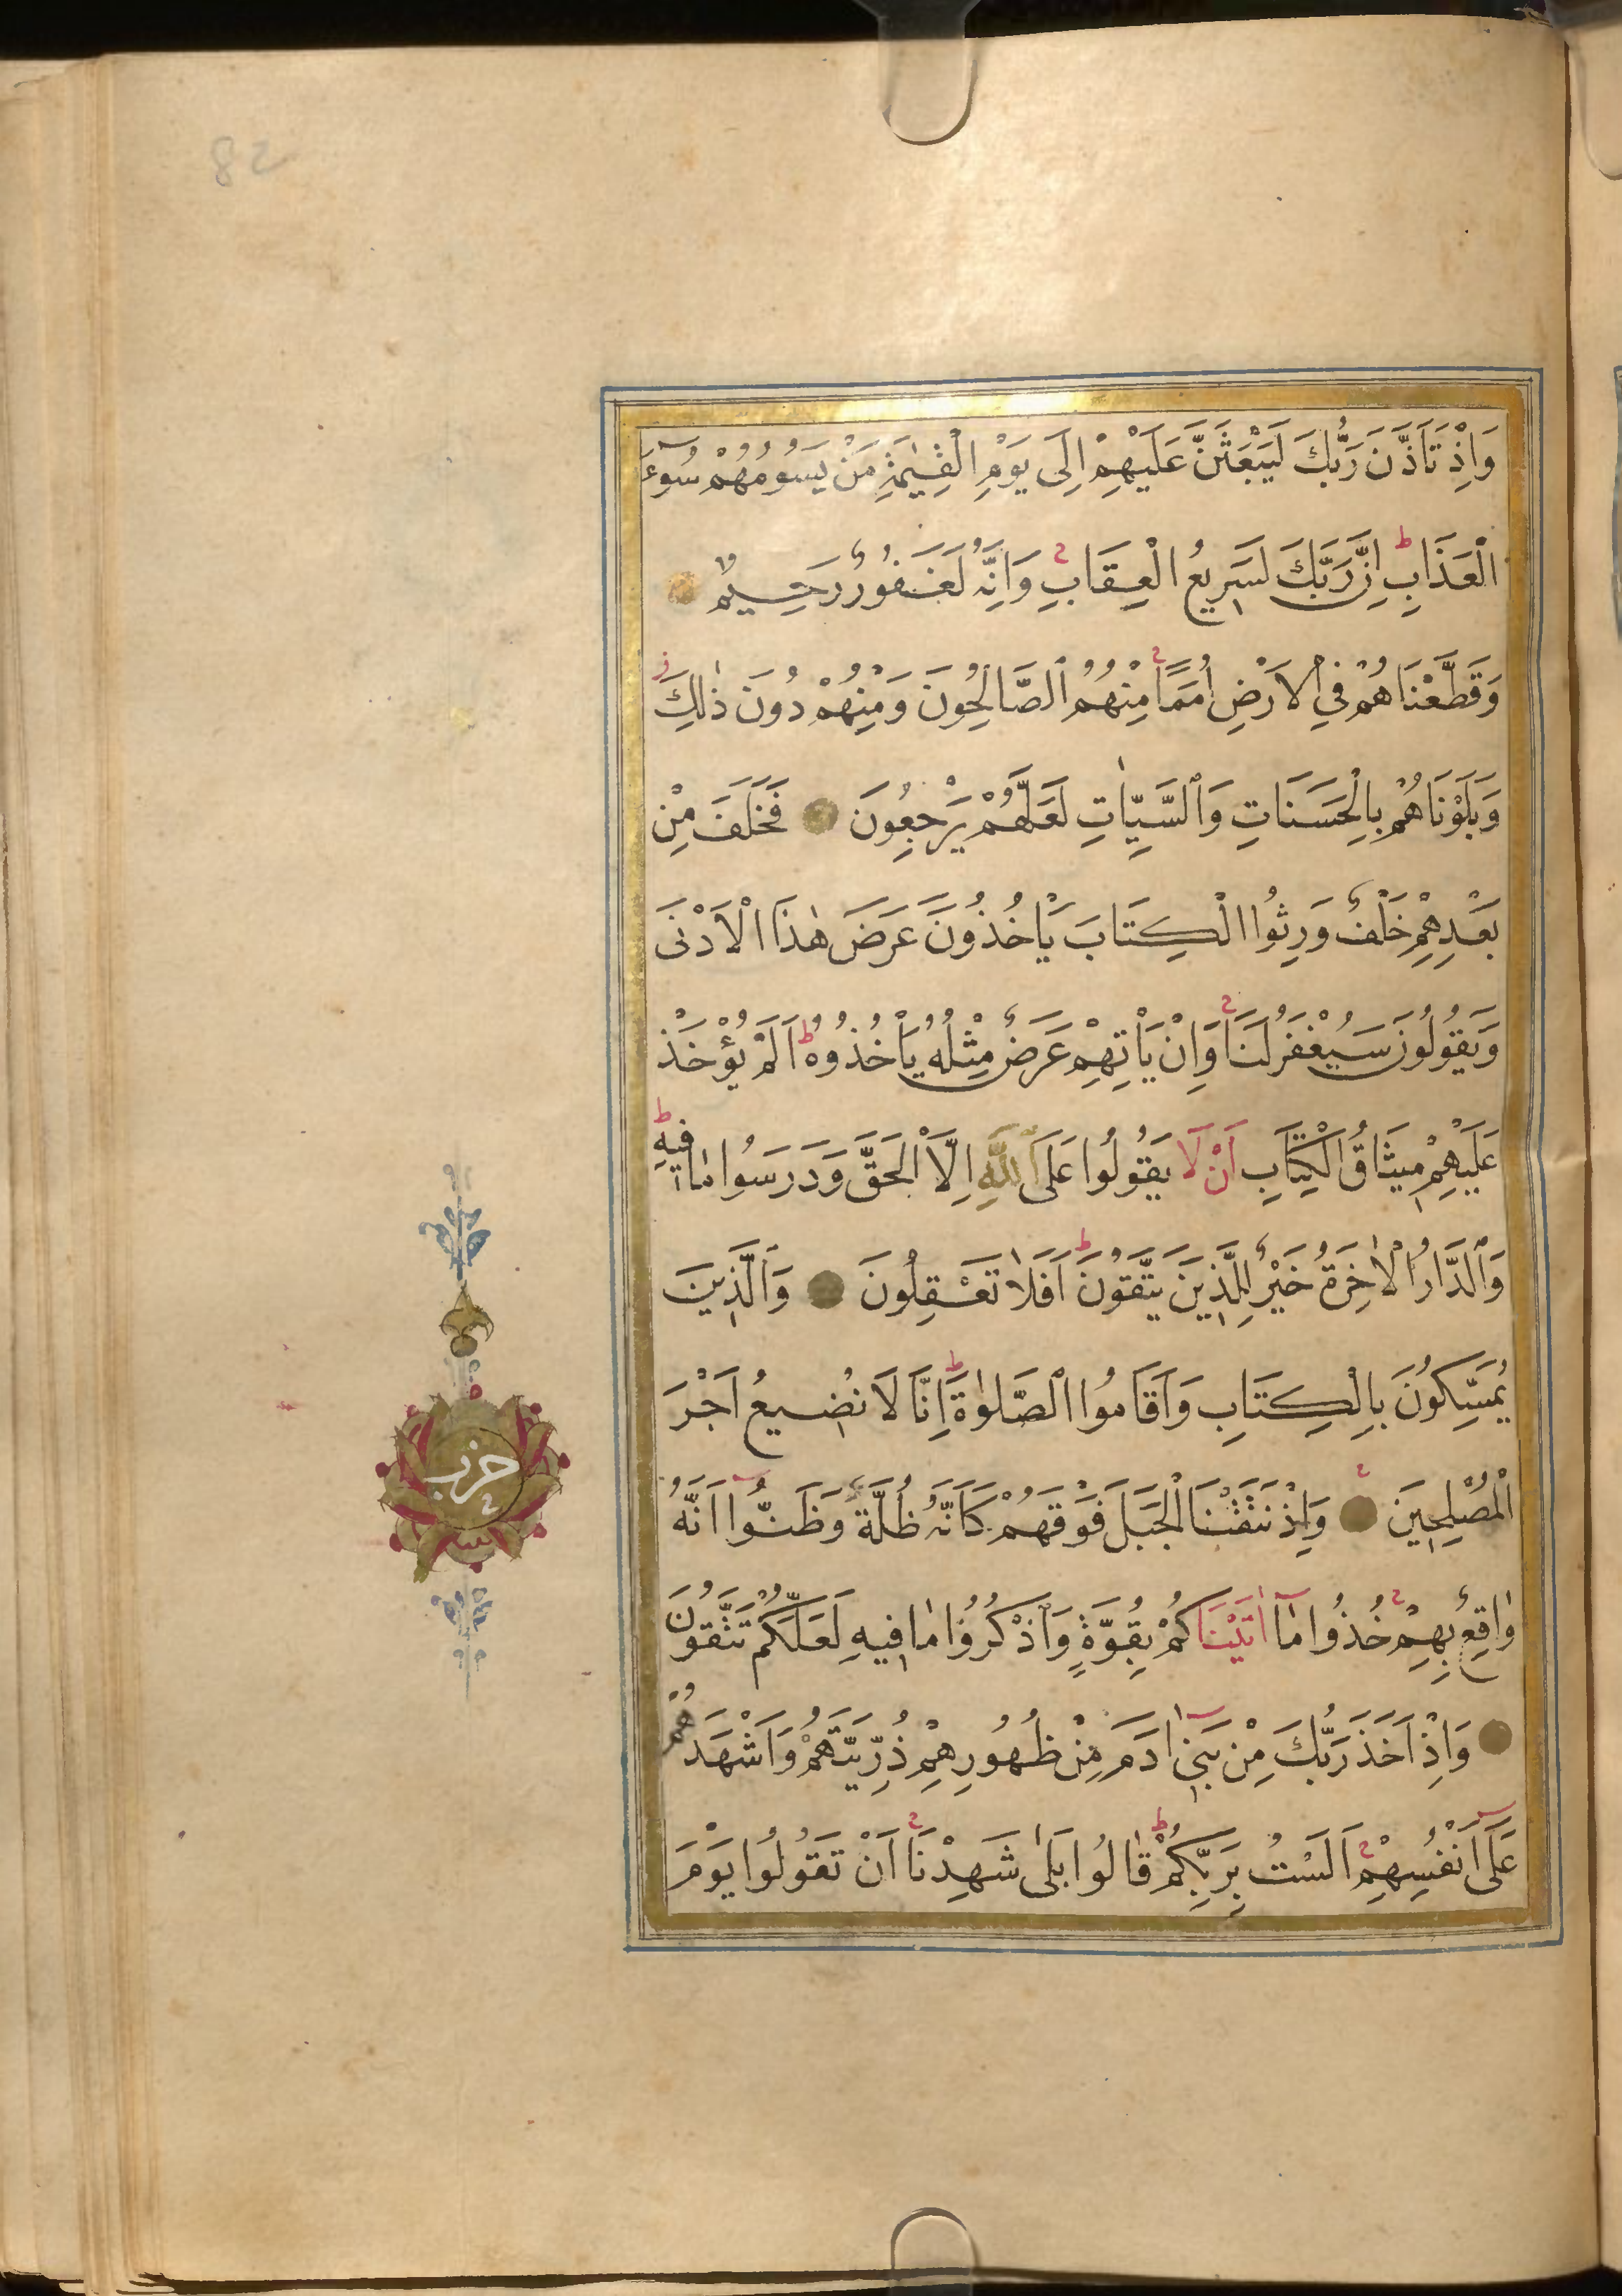 82
وَاِذْ تَاَذَّنَ رَبُّكَ لَيَبْعَثَنَّ عَلَيْهِمْ اِلٰى يَوْمِ الْقِيٰمَةِ مَنْ يَسُومُهُمْ سُوٓءَ
الْعَذَابِ ط اِنَّ رَبَّكَ لَسَرِيعُ الْعِقَابِ وَاِنَّهُ لَغَفُورٌ رَحِيمٌ
وَقَطَّعْنَاهُمْ فِي الْاَرْضِ اُمَمًا مِنْهُمُ الصَّالِحُونَ وَمِنْهُمْ دُونَ ذٰلِكَ
وَبَلَوْنَاهُمْ بِالْحَسَنَاتِ وَالسَّيِّاٰتِ لَعَلَّهُمْ يَرْجِعُونَ فَخَلَفَ مِنْ
بَعْدِهِمْ خَلْفٌ وَرِثُوا الْكِتَابَ يَاْخُذُونَ عَرَضَ هٰذَا الْاَدْنٰى
وَيَقُولُونَ سَيُغْفَرُ لَنَا وَاِنْ يَاْتِهِمْ عَرَضٌ مِثْلُهُ يَاْخُذُوهُ ط اَلَمْ يُؤْخَذْ
عَلَيْهِمْ مِيثَاقُ الْكِتَابِ اَنْ لَا يَقُولُوا عَلَى اللّٰهِ اِلَّا الْحَقَّ وَدَرَسُوا مَا فِيهِ ط
وَالدَّارُ الْاٰخِرَةُ خَيْرٌ لِلَّذِينَ يَتَّقُونَ ط اَفَلَا تَعْقِلُونَ وَالَّذِينَ
يُمَسِّكُونَ بِالْكِتَابِ وَاَقَامُوا الصَّلٰوةَ ط اِنَّا لَا نُضِيعُ اَجْرَ
الْمُصْلِحِينَ وَاِذْ نَتَقْنَا الْجَبَلَ فَوْقَهُمْ كَاَنَّهُ ظُلَّةٌ وَظَنُّٓوا اَنَّهُ
وَاقِعٌ بِهِمْ خُذُوا مَٓا اٰتَيْنَاكُمْ بِقُوَّةٍ وَاذْكُرُوا مَا فِيهِ لَعَلَّكُمْ تَتَّقُونَ
وَاِذْ اَخَذَ رَبُّكَ مِنْ بَنِٓي اٰدَمَ مِنْ ظُهُورِهِمْ ذُرِّيَّتَهُمْ وَاَشْهَدَهُمْ
عَلٰٓى اَنْفُسِهِمْ اَلَسْتُ بِرَبِّكُمْ ط قَالُوا بَلٰى شَهِدْنَا اَنْ تَقُولُوا يَوْمَ
حزب